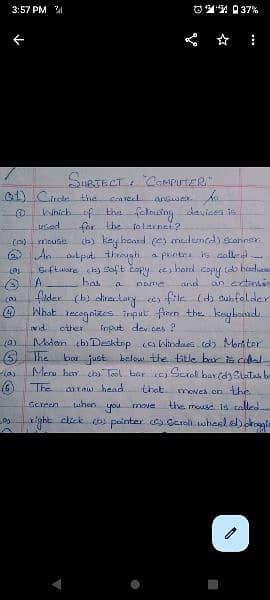 3:57 PM
37%
SUBJECT : "COMPUTER"
Q1) Circle the correct answer.
① Which of the following devices is
used for the internet?
(a) mouse (b) keyboard (c) modem (d) scanner
② An output through a printer is called
(a) Software (b) soft copy (c) hard copy (d) hardware
③ A ____ has a name and an extension
(a) folder (b) directory (c) file (d) subfolder
④ What recognizes input from the keyboard
and other input devices ?
(a) Modem (b) Desktop (c) Windows (d) Monitor
⑤ The bar just below the title bar is called
(a) Menu bar (b) Tool bar (c) Scroll bar (d) Status b
⑥ The arrow head that moves on the
screen when you move the mouse is called
(a) right click (b) pointer (c) Scroll wheel (d) draggi